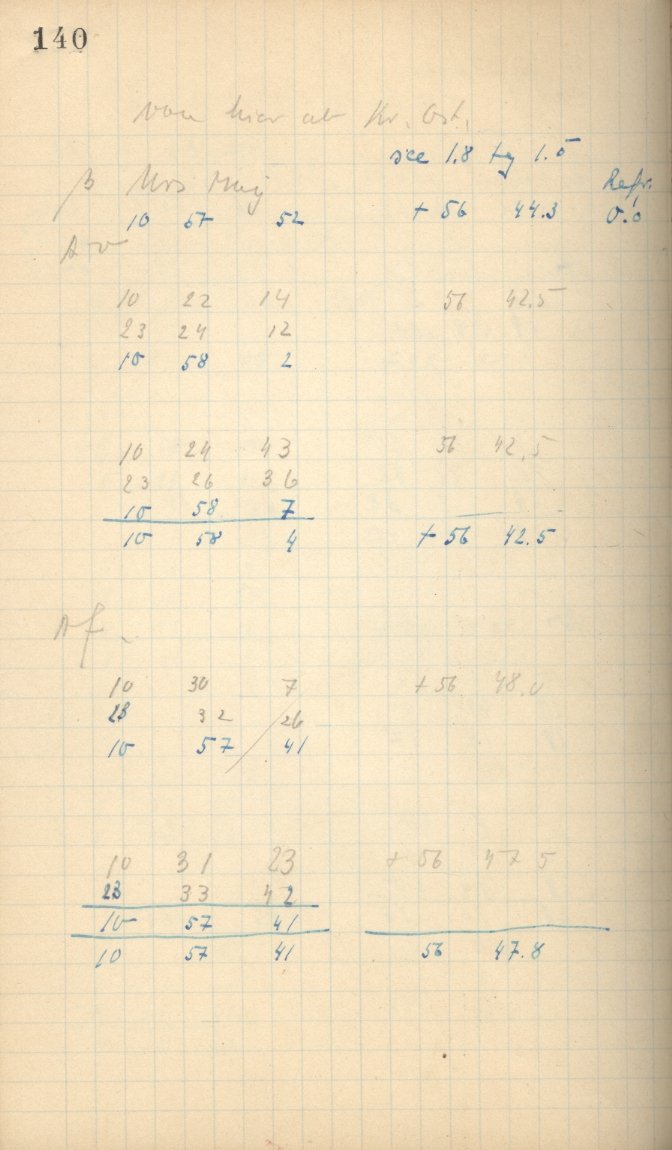 140
von hier ab Kr. Ost.
sec 1.8 tg 1.5
β Urs Maj
Refr.
10 57 52 + 56 44.3 0.0
A v
10 22 14 56 42.5
23 24 12
10 58 2
10 24 43 56 42.5
23 26 36
10 58 7
10 58 4 + 56 42.5
A f
10 30 7 + 56 48.0
23 32 26
10 57 41
10 31 23 + 56 47 5
23 33 42
10 57 41
10 57 41 56 47.8